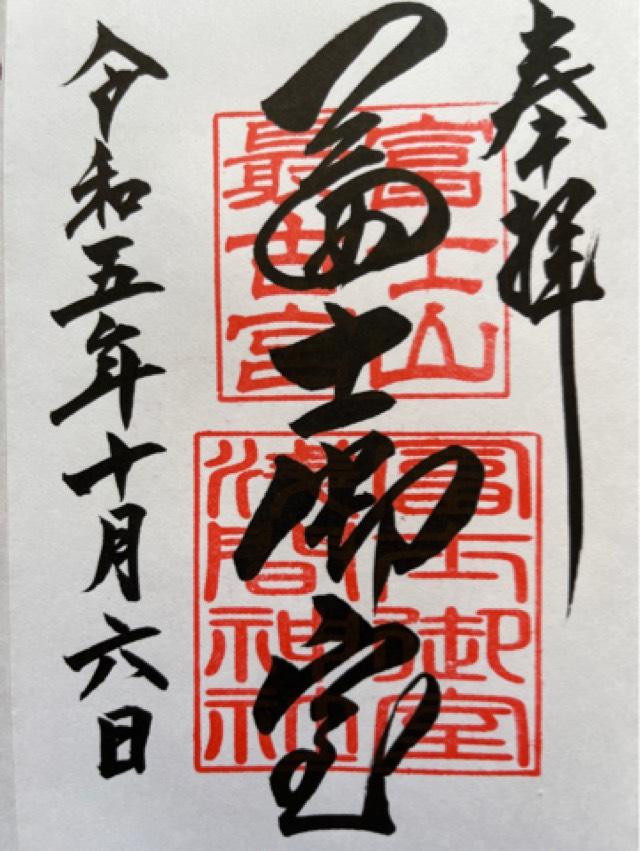 奉拝
冨士御室
富士山
最古宮
冨士御室
浅間神社
令和五年十月六日